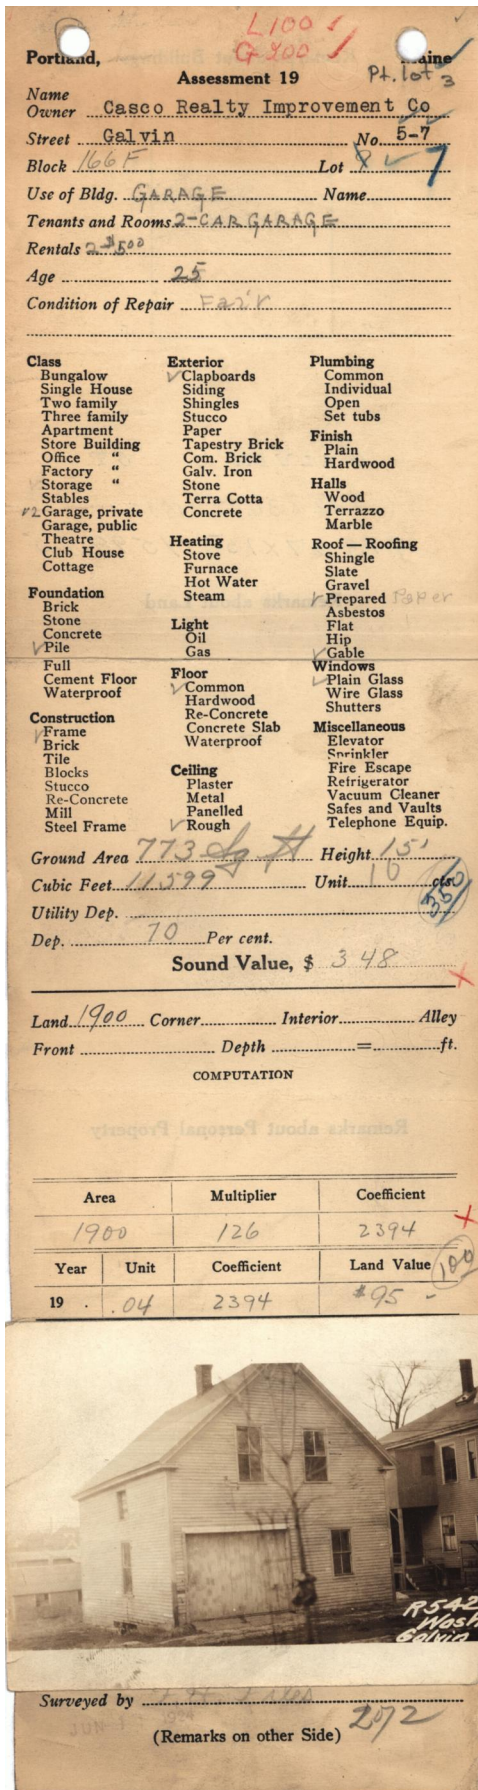 L100 ✓
G 200 ✓
Portland, Maine
Assessment 19 Pt. lot 3
Name
Owner Casco Realty Improvement Co
Street Galvin No. 5-7
Block 166 F Lot 8 ✓ 7
Use of Bldg. GARAGE Name
Tenants and Rooms 2-CAR GARAGE
Rentals 2-$5.00
Age 25
Condition of Repair Fair
Class
Bungalow
Single House
Two family
Three family
Apartment
Store Building
Office "
Factory "
✓ Storage "
Stables
✓2 Garage, private
Garage, public
Theatre
Club House
Cottage
Foundation
Brick
Stone
Concrete
✓ Pile
Full
Cement Floor
Waterproof
Construction
✓ Frame
Brick
Tile
Blocks
Stucco
Re-Concrete
Mill
Steel Frame
Exterior
✓ Clapboards
Siding
Shingles
Stucco
Paper
Tapestry Brick
Com. Brick
Galv. Iron
Stone
Terra Cotta
Concrete
Heating
Stove
Furnace
Hot Water
Steam
Light
Oil
Gas
Floor
✓ Common
Hardwood
Re-Concrete
Concrete Slab
Waterproof
Ceiling
Plaster
Metal
Panelled
✓ Rough
Plumbing
Common
Individual
Open
Set tubs
Finish
Plain
Hardwood
Halls
Wood
Terrazzo
Marble
Roof — Roofing
Shingle
Slate
Gravel
✓ Prepared Paper
Asbestos
Flat
Hip
✓ Gable
Windows
✓ Plain Glass
Wire Glass
Shutters
Miscellaneous
Elevator
Sprinkler
Fire Escape
Refrigerator
Vacuum Cleaner
Safes and Vaults
Telephone Equip.
Ground Area 773 Sq ft Height 15'
Cubic Feet 11599 Unit 10 cts.
350
Utility Dep.
Dep. 70 Per cent.
Sound Value, $ 348
Land 1900 Corner Interior Alley
Front Depth = ft.
COMPUTATION
Area Multiplier Coefficient
1900 126 2394
Year Unit Coefficient Land Value 100
19 . .04 2394 $95 -
R542
Wash
Galvin
Surveyed by
JUN
1924
(Remarks on other Side) 2072